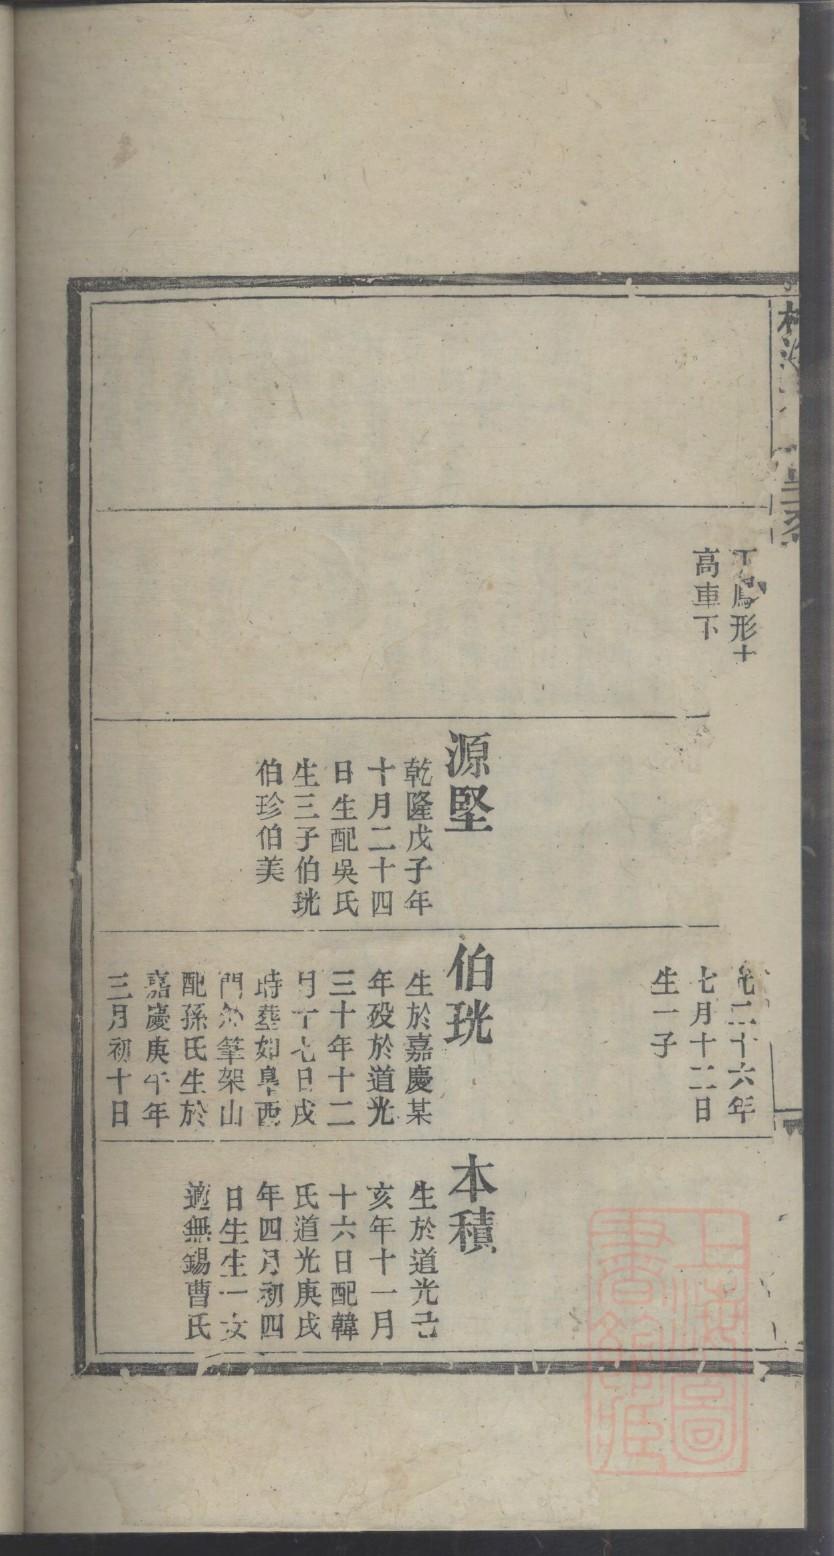 世系
形十
高車下
源堅
乾隆戊子年
十月二十四
日生配吳氏
生三子伯珖
伯珍伯美
光二十六年
七月十二日
生一子
伯珖
生於嘉慶某
年歿於道光
三十年十二
月十七日戌
時塟如臯西
門外筆架山
配孫氏生於
嘉慶庚午年
三月初十日
本積
生於道光己
亥年十一月
十六日配韓
氏道光庚戌
年四月初四
日生生一女
適無錫曹氏
上海圖
書館藏